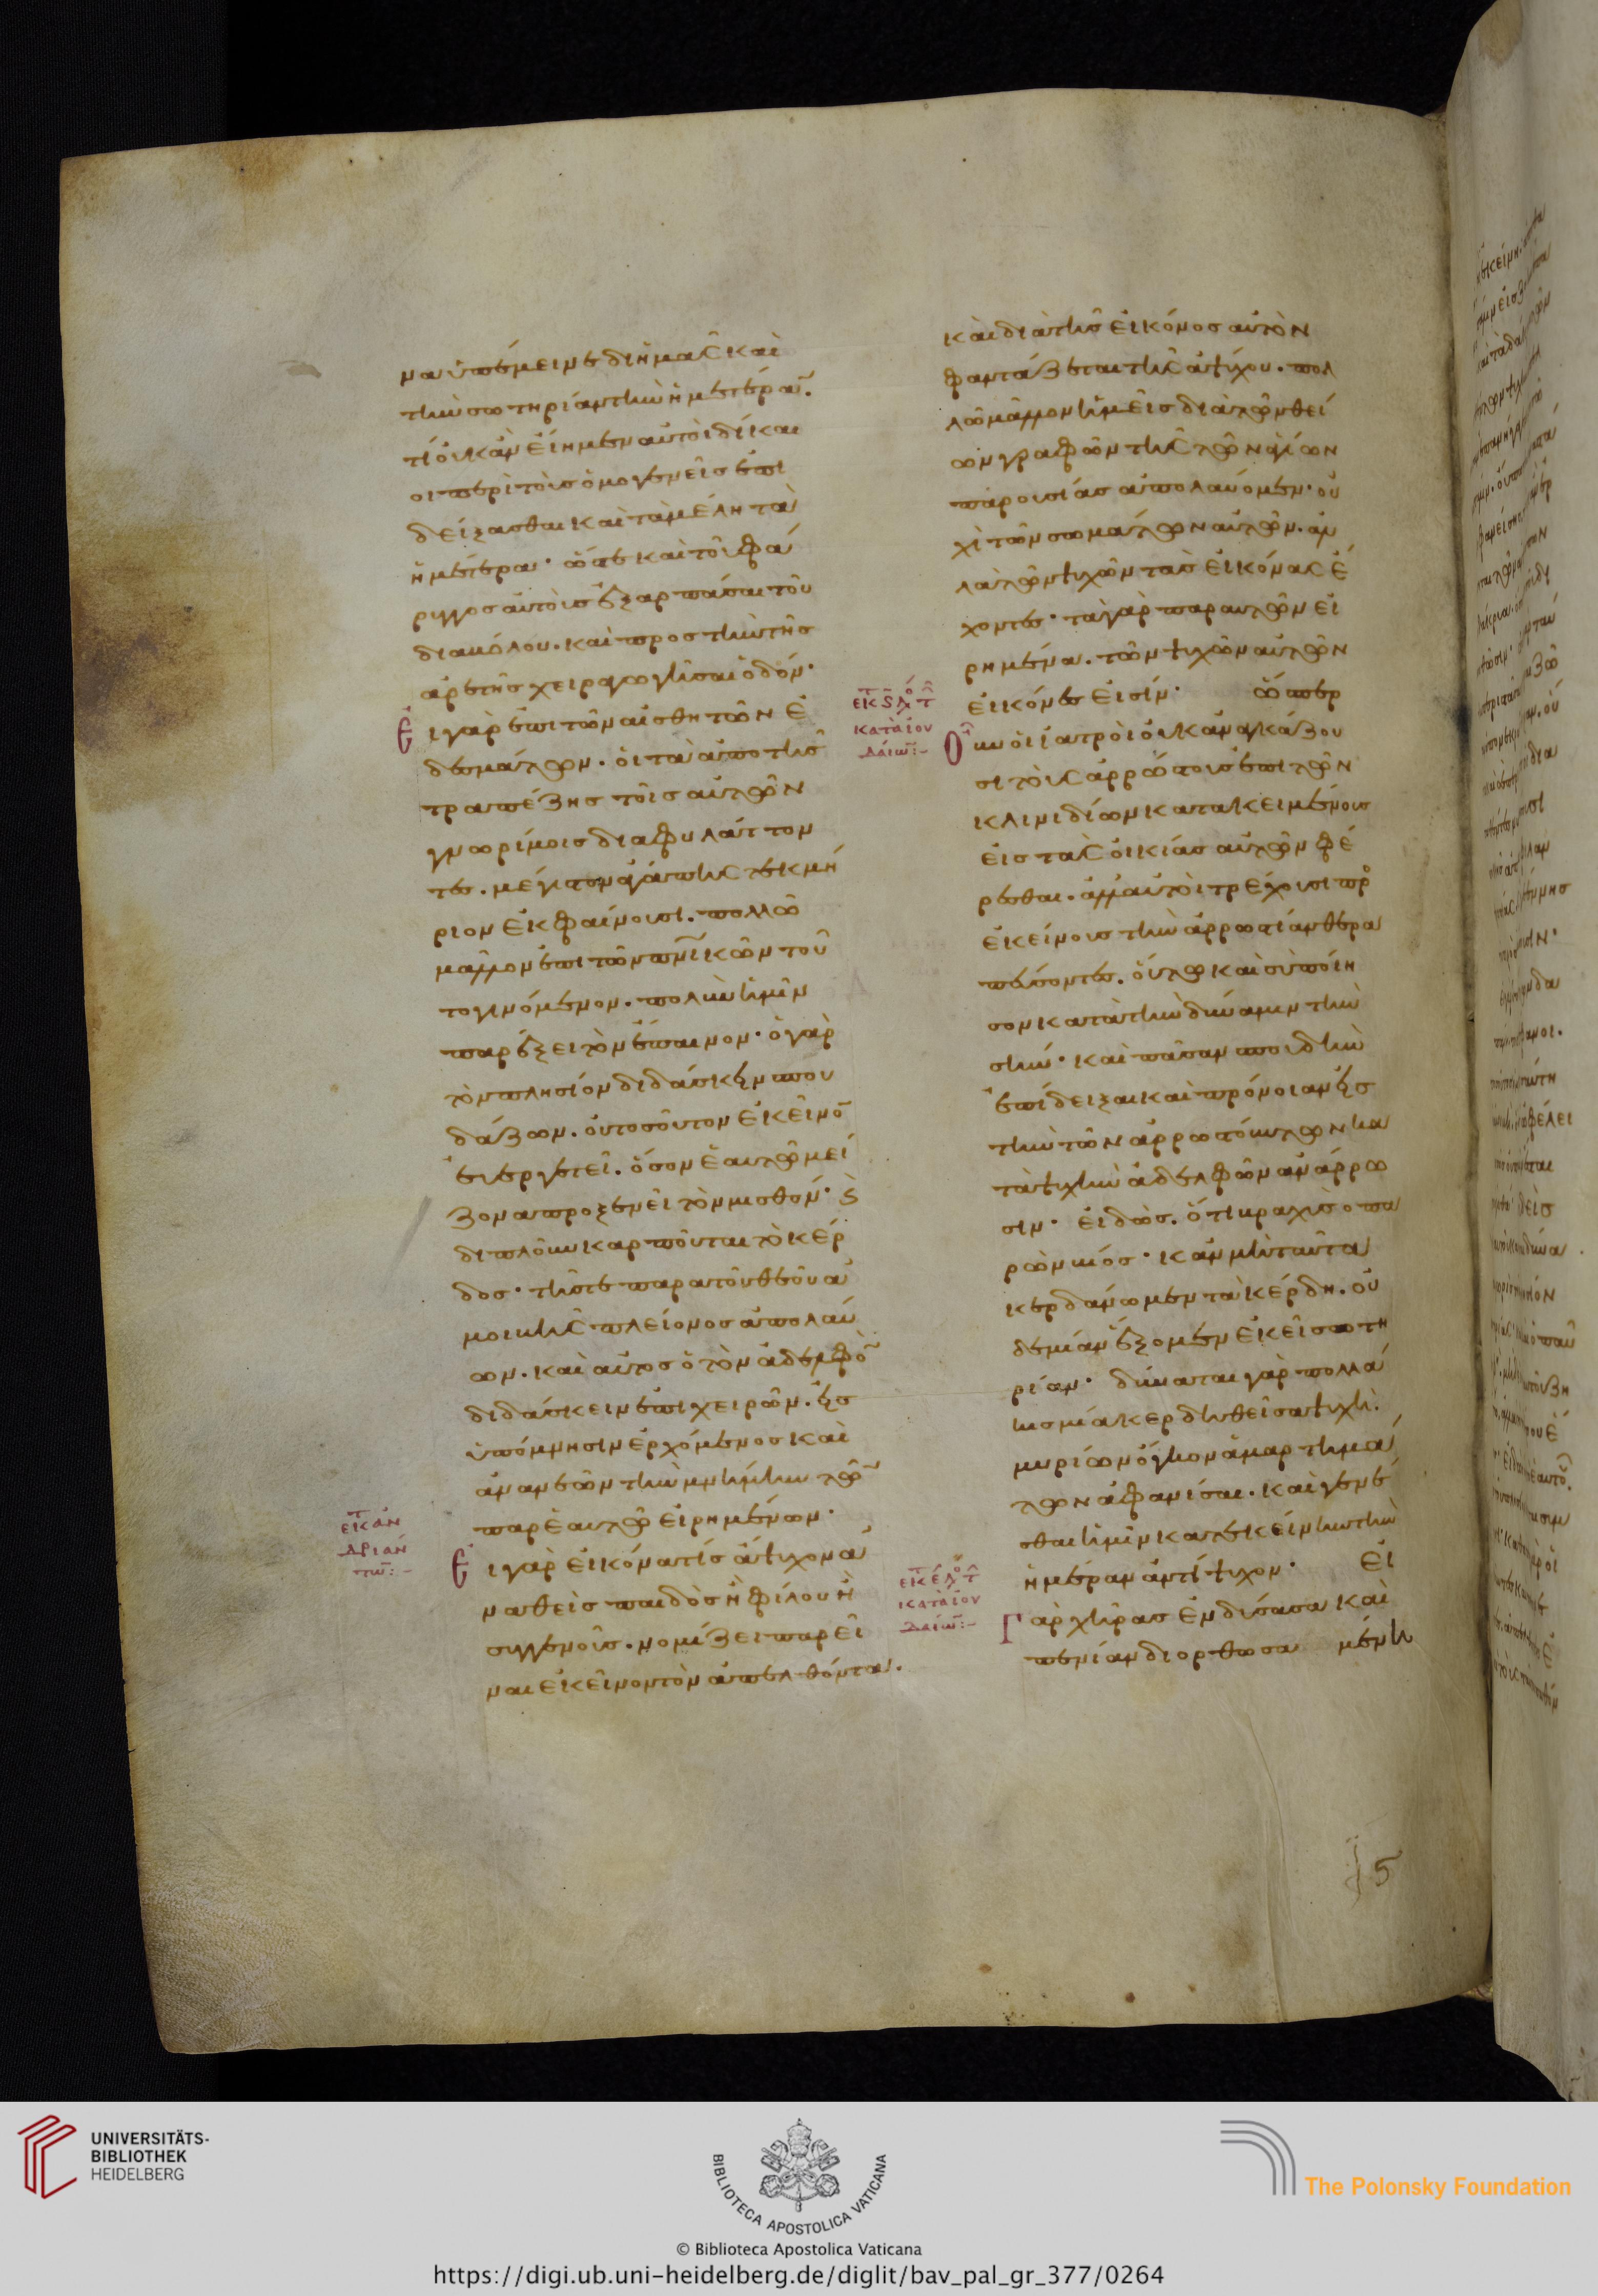 να ὑπέμεινε δι ἡμᾶς καὶ
τὴν σωτηρίαν τὴν ἡμετέρα̅.
τί οὐκ ἂν εἴημεν αὐτοὶ δίκαι
οι περὶ τοὺς ὁμογενεῖς ἐπι
δείξασθαι καὶ τὰ μέλη τὰ
ἡμέτερα· ὥστε καὶ τοῦ φά
ρυγγος αὐτοὺς ἐξαρπάσαι τοῦ
διαβόλου. καὶ προς τὴν τῆς
ἀρετῆς χειραγωγῆσαι ὁδόν·
Ει γὰρ ἐπι τῶν αἰσθητῶν ἐ
δεσμάτων. οἱ τὰ ἀπο τῆς
τραπέζης τοῖς αὐτῶν
γνωρίμοις διαφυλάττον
τες. μέγιστον ἀγάπης τεκμή
ριον ἐκφαίνουσι. πολλῶ
μᾶλλον ἐπι τῶν πν̅ικῶν τοῦ
το γινόμενον. πολὺν ἡμῖν
παρέξει τὸν ἔπαινον· ὁ γὰρ
τὸν πλησίον διδάσκειν σπου
δάζων. οὐ τοσοῦτον ἐκεῖνο̅
εὐεργετεῖ. ὅσον ἑαυτῶ μεί
ζονα προξενεῖ τὸν μισθόν· ϗ
διπλοῦν καρποῦται τὸ κέρ
δος· τῆς τε παρα τοῦ θεοῦ ἀ
μοιβῆς πλείονος ἀπολαύ
ων. καὶ αὐτος ὁ τὸν ἀδελφὸ̅
διδάσκειν ἐπιχειρῶν. εἰς
ὑπόμνησιν ἐρχόμενος καὶ
ἀνανεῶν τὴν μνήμην τῶ̅
παρ ἑαυτῶ εἰρημένων·
Ει γὰρ εἰκόνα τίς ἄψυχον ἀ
ναθεὶς παιδὸς ἢ φίλου ἢ
συγγενοῦς. νομίζει παρεῖ
ναι ἐκεῖνον τὸν ἀπελθόντα.
εκ αν
δριάν
τω̅:-
καὶ διὰ τῆς εἰκόνος αὐτὸν
φαντάζεται τῆς ἀψύχου. πολ
λῶ μᾶλλον ἡμεῖς διὰ τῶν θεί
ων γραφῶν τῆς τῶν ἁγίων
παρουσίας ἀπολαύομεν. οὐ
χὶ τῶν σωμάτων αὐτῶν. ἀλ
λὰ τῶν ψυχῶν τὰς εἰκόνας ἔ
χοντες· τὰ γὰρ παρ αυτῶν εἰ
ρημένα. τῶν ψυχῶν αὐτῶν
εἰκόνες εἰσίν· ὥσπερ
Οὖν οἱ ἰατροὶ οὐκ ἀναγκάζου
σι τοὺς ἀρρώστους ἐπι τῶν
κλινιδίων κατακειμένους
εἰς τὰς οἰκίας αὐτῶν φέ
ρεσθαι. ἀλλ αὐτοὶ τρέχουσι πρ̅
ἐκείνους τὴν ἀρρωστίαν θερα
πεύσοντες. οὕτω καὶ σὺ ποίη
σον κατὰ τὴν δύναμιν τὴν
σὴν· καὶ πᾶσαν σπουδὴν
ἐπίδειξαι καὶ πρόνοιαν εἰς
τὴν τῶν ἀρρωστούντων κα
τὰ ψυχὴν ἀδελφῶν ἀνάρρω
σιν· εἰδὼς. ὅτι βραχὺς ὁ πα
ρὼν βίος· κἂν μὴ ταῦτα
κερδάνωμεν τὰ κέρδη. οὐ
δεμίαν ἕξομεν ἐκεῖ σωτη
ρίαν· δύναται γὰρ πολλά
κις μία κερδηθεῖσα ψυχὴ.
μυρίων ὄγκον ἁμαρτημά
των ἀφανίσαι. καὶ γενέ
σθαι ἡμῖν κατ ἐκείνην τὴν
ἡμέραν ἀντίψυχον· Εἰ
Γὰρ χήρας ἐνδύσασα καὶ
πενίαν διορθωσα μένη
κατα ιου
δαίω̅:-
κατα ιου
δαίω̅:-
5
UNIVERSITÄTS-
BIBLIOTHEK
HEIDELBERG
BIBLIOTECA APOSTOLICA VATICANA
© Biblioteca Apostolica Vaticana
The Polonsky Foundation
https://digi.ub.uni-heidelberg.de/diglit/bav_pal_gr_377/0264